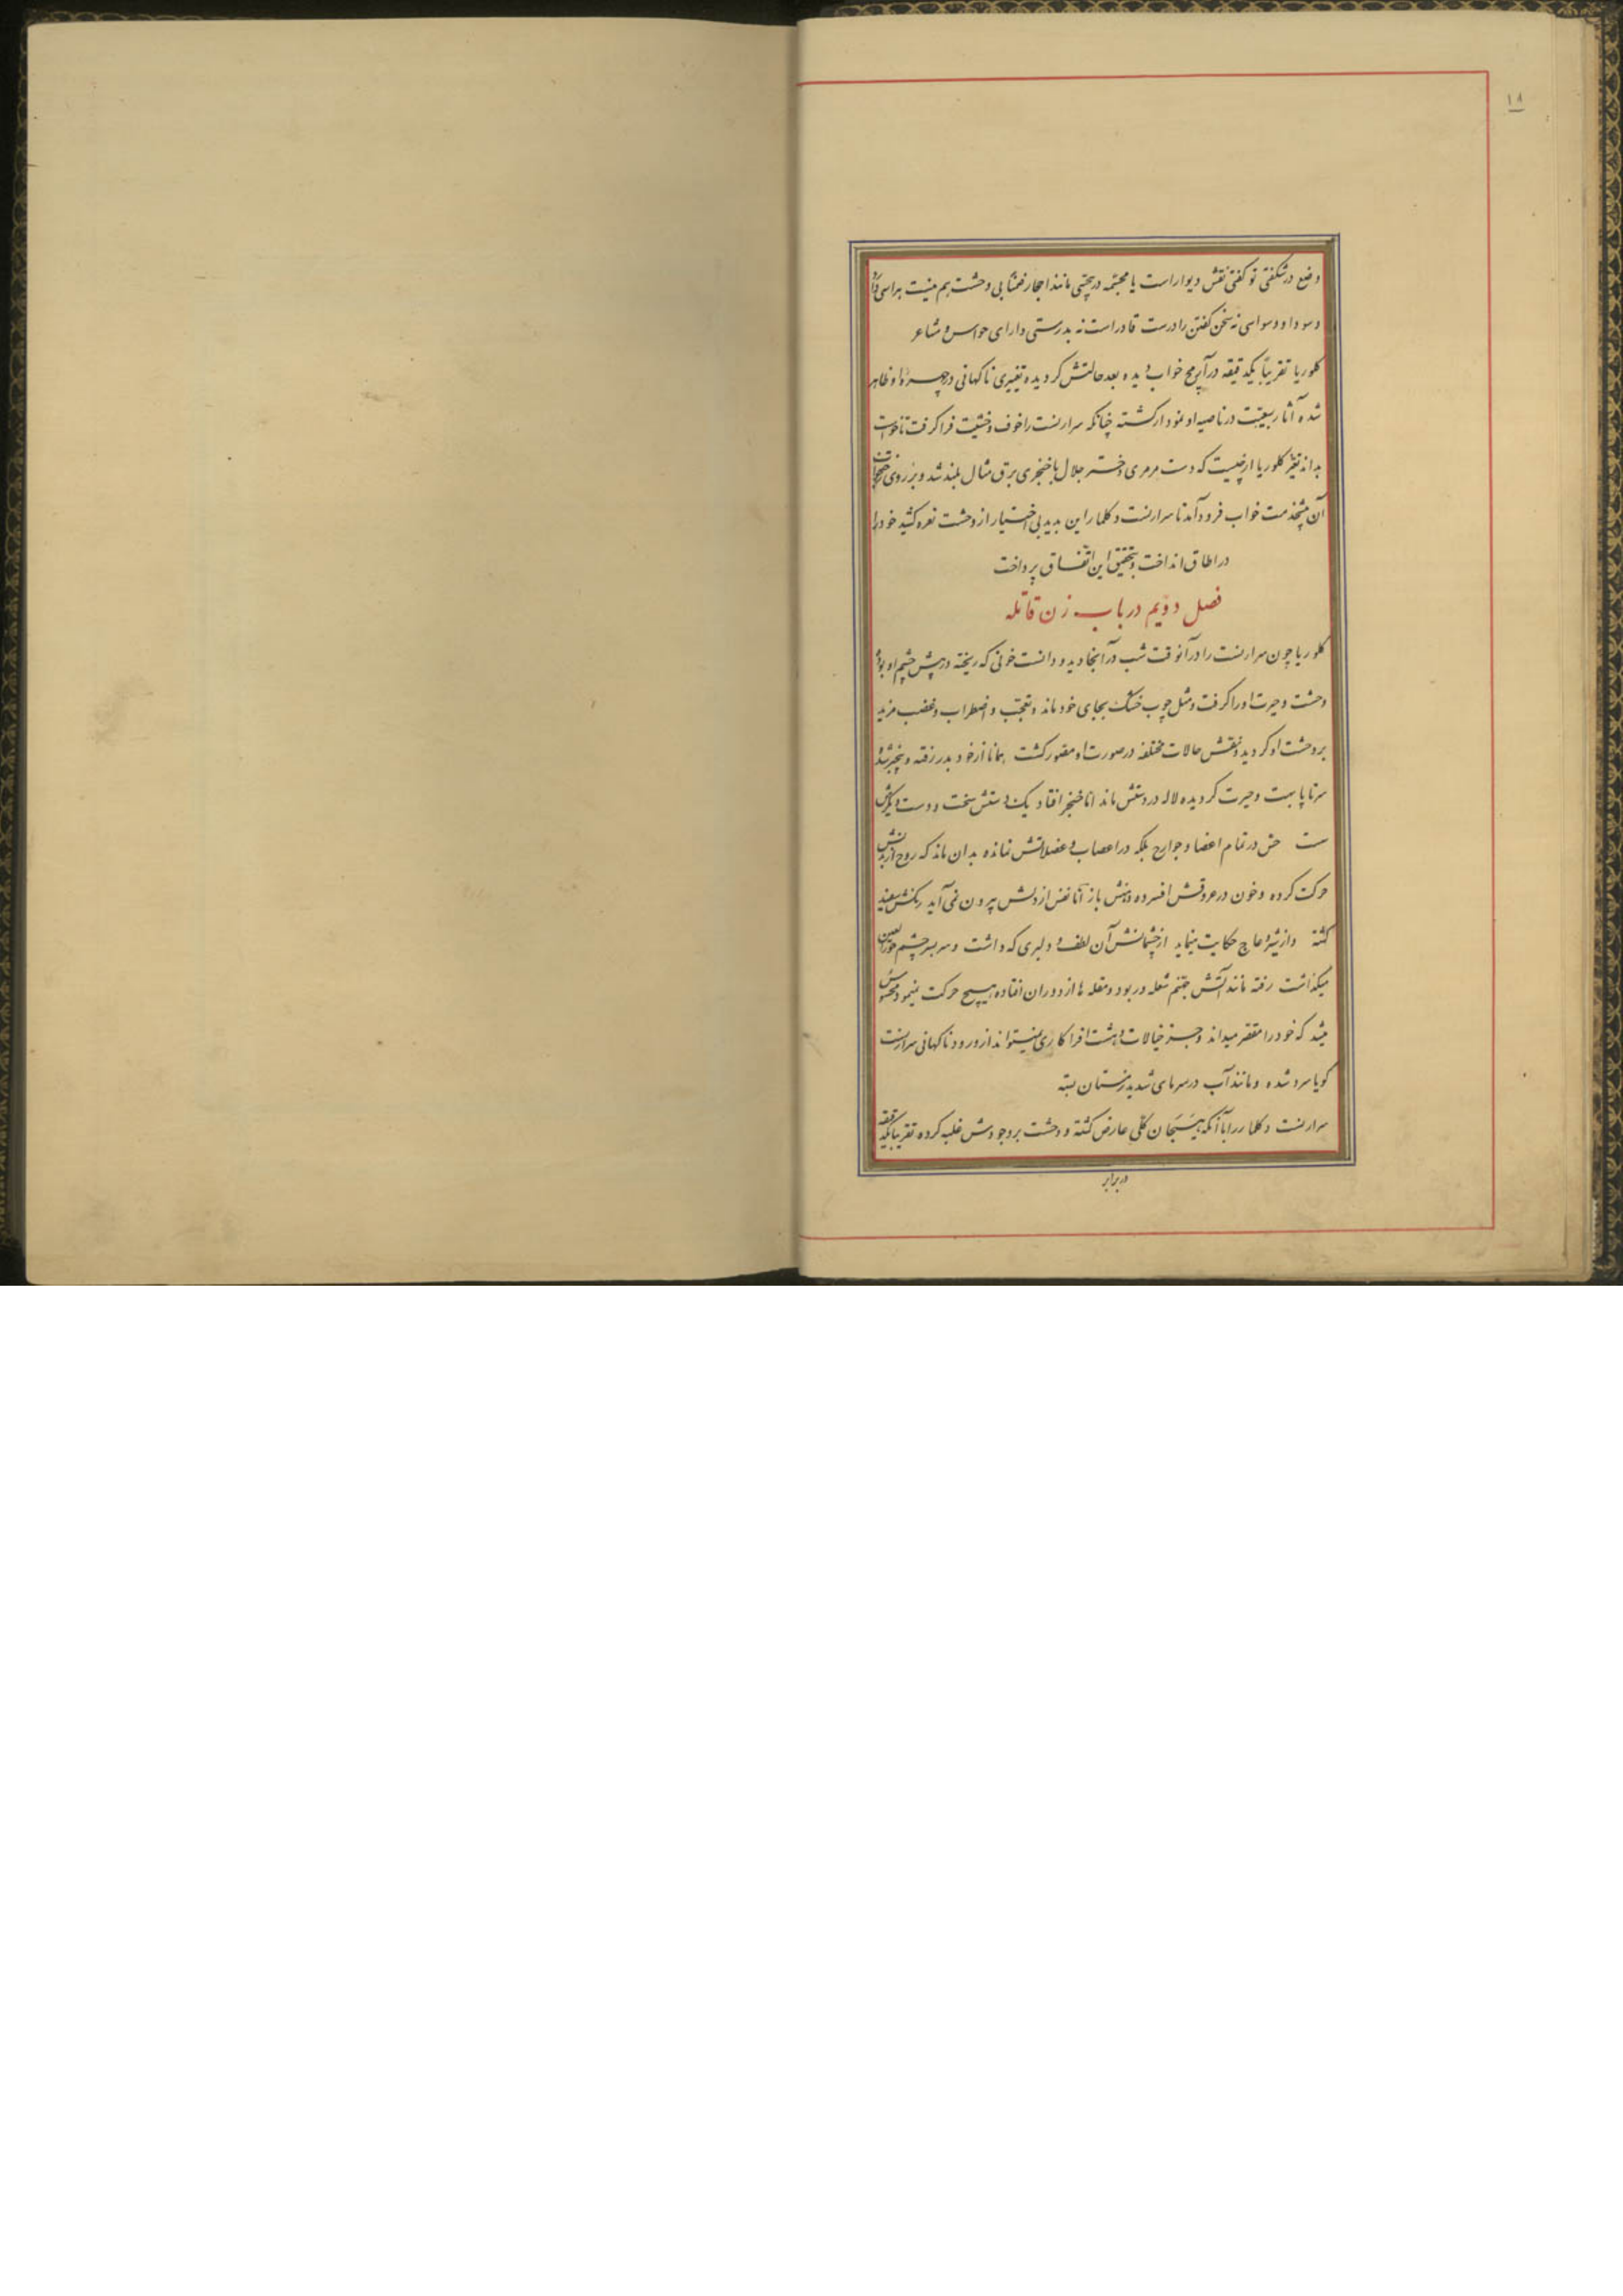 ۱۸
وضع در شگفتی تو گفتی نقش دیوار است یا مجسمه در بیحسی مانند احجار فقدانی وحشت هم نیست هراسی
و سودا و وسواسی نه سخن گفتن را درست قادر است نه بدرستی دارای حواس و مشاعر
کلوریا تقریباً یکدقیقه در آن مح خوابیده بعد حالتش گردیده تغییری ناگهانی در چهره او ظاهر
شده آثار سبعیت در ناصیه او نمودار گشته چنانکه سرارنست را خوف و خشیت فرا گرفت تا خواست
بداند تغیّر کلوریا از چیست که دست مرمری دختر جلال با خنجری برق مثال بلند شد و بر روی
آن پیشخدمت خواب فرود آمد تا سرارنست دکلمار این بدید بی اختیار از وحشت نعره کشید خود را
در اطاق انداخت و بتحقیق این اتفاق پرداخت
فصل دویم در باب زن قاتله
کلوریا چون سرارنست را در آنوقت شب در آنجا دید و دانست خونی که ریخته در پیش چشم او بوده
وحشت و حیرت او را گرفت و مثل چوب خشک بجای خود ماند و تعجب و اضطراب و غضب مزید
بر وحشت او گردید و نقش حالات مختلفه در صورت او مصور گشت همانا از خود بدر رفته و بیخبر شده
سرتاپا بهت و حیرت گردیده لاله در دستش ماند اما خنجر افتاد یک دستش سخت و دست دیگرش
سست حس در تمام اعضا و جوارح بلکه در اعصاب و عضلاتش نمانده بدان ماند که روح از بدنش
حرکت کرده و خون در عروقش افسرده دهنش باز اما نفس از دلش بیرون نمی آید رنگش سفید
گشته و از شیر و عاج حکایت مینماید از چشمانش آن لطف و دلبری که داشت و سر بسر چشم حورالعین
میگذاشت رفته مانند آتش جهنم شعله ور بود و مقله ها از دوران افتاده هیچ حرکت نمینمود محسوس
میشد که خود را مقصر میداند و جز خیالات دهشت افزا کاری نمیتواند از ورود ناگهانی سرارنست
گویا سرد شده و مانند آب در سرمای شدید زمستان بسته
سرارنست دکلمار را با آنکه هیجان کلّی عارض گشته و وحشت بر وجودش غلبه کرده تقریباً یکدقیقه
در برابر